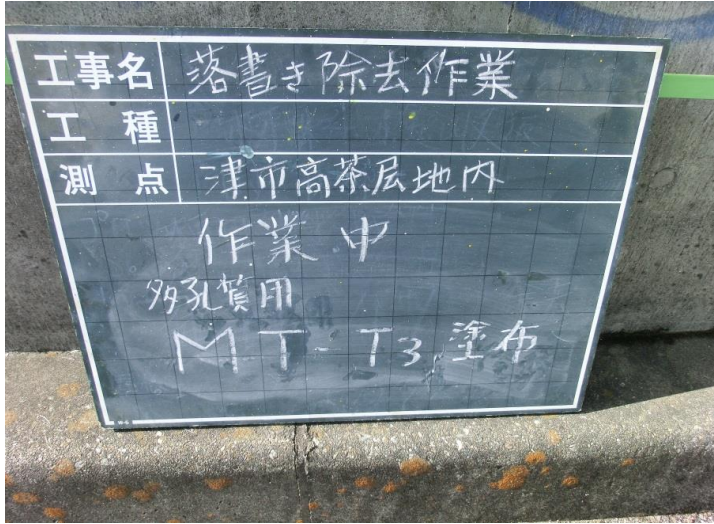 工事名 落書き除去作業
工種
測点 津市高茶屋地内
作業中
多孔質用
MT-T3,塗布